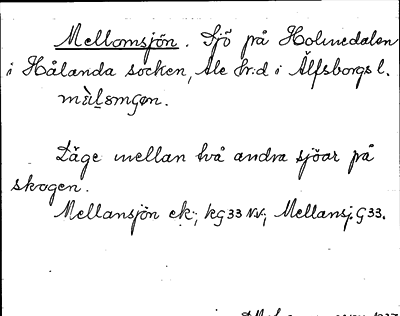 Mellomsjön. Sjö på Holmedalen
i Hålanda socken, Ale hrd i Älfsborgs l.
Läge mellan två andra sjöar på
skogen.
Mellansjön ek; kg 33 NV; Mellansj. G 33.